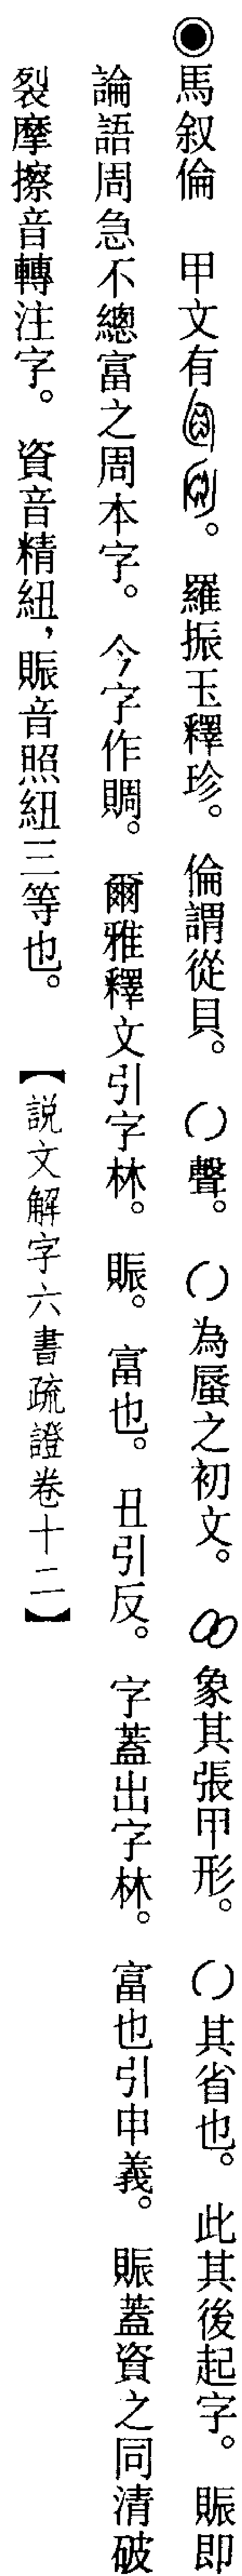 ◉馬叙倫　甲文有。羅振玉釋珍。倫謂從貝。()聲。()為蜃之初文。象其張甲形。()其省也。此其後起字。賑即
論語周急不繼富之周本字。今字作賙。爾雅釋文引字林。賑。富也。丑引反。字蓋出字林。富也引申義。賑蓋資之同清破
裂摩擦音轉注字。資音精紐，賑音照紐三等也。【説文解字六書疏證卷十二】